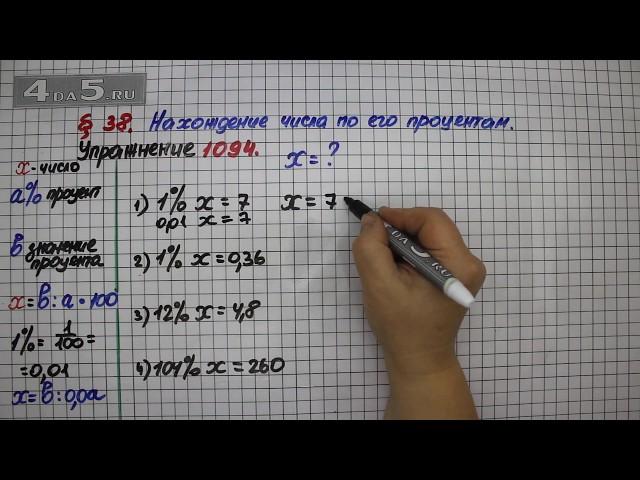 4DA5.RU
§ 38. Нахождение числа по его процентам.
Упражнение 1094.
x = ?
x - число
a% процент
в значение процента
x = в : a • 100
1% = 1/100 =
= 0,01
x = в : 0,0a
1) 1% x = 7
0,01 x = 7
x = 7
2) 1% x = 0,36
3) 12% x = 4,8
4) 104% x = 260
DA5.RU